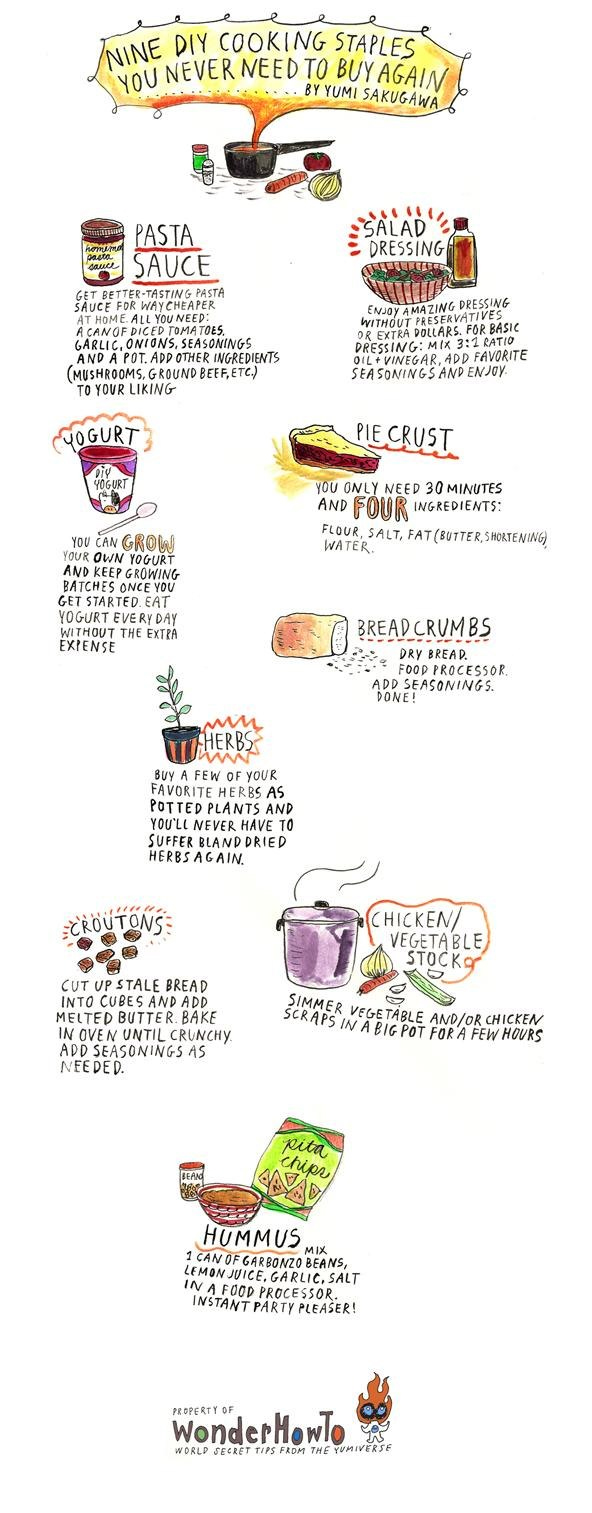 NINE DIY COOKING STAPLES
YOU NEVER NEED TO BUY AGAIN
............... BY YUMI SAKUGAWA
homemade
pasta
sauce
PASTA
SAUCE
GET BETTER-TASTING PASTA
SAUCE FOR WAY CHEAPER
AT HOME. ALL YOU NEED:
A CAN OF DICED TOMATOES,
GARLIC, ONIONS, SEASONINGS
AND A POT. ADD OTHER INGREDIENTS
(MUSHROOMS, GROUND BEEF, ETC.)
TO YOUR LIKING
SALAD
DRESSING
ENJOY AMAZING DRESSING
WITHOUT PRESERVATIVES
OR EXTRA DOLLARS. FOR BASIC
DRESSING: MIX 3:1 RATIO
OIL + VINEGAR, ADD FAVORITE
SEASONINGS AND ENJOY.
YOGURT
DIY
YOGURT
YOU CAN GROW
YOUR OWN YOGURT
AND KEEP GROWING
BATCHES ONCE YOU
GET STARTED. EAT
YOGURT EVERY DAY
WITHOUT THE EXTRA
EXPENSE
PIE CRUST
YOU ONLY NEED 30 MINUTES
AND FOUR INGREDIENTS:
FLOUR, SALT, FAT (BUTTER, SHORTENING),
WATER.
BREADCRUMBS
DRY BREAD.
FOOD PROCESSOR.
ADD SEASONINGS.
DONE!
HERBS
BUY A FEW OF YOUR
FAVORITE HERBS AS
POTTED PLANTS AND
YOU'LL NEVER HAVE TO
SUFFER BLAND DRIED
HERBS AGAIN.
CROUTONS
CUT UP STALE BREAD
INTO CUBES AND ADD
MELTED BUTTER. BAKE
IN OVEN UNTIL CRUNCHY.
ADD SEASONINGS AS
NEEDED.
CHICKEN/
VEGETABLE
STOCK
SIMMER VEGETABLE AND/OR CHICKEN
SCRAPS IN A BIG POT FOR A FEW HOURS
pita
chips
BEANS
HUMMUS
MIX
1 CAN OF GARBONZO BEANS,
LEMON JUICE, GARLIC, SALT
IN A FOOD PROCESSOR.
INSTANT PARTY PLEASER!
PROPERTY OF
WonderHowTo
WORLD SECRET TIPS FROM THE YUMIVERSE